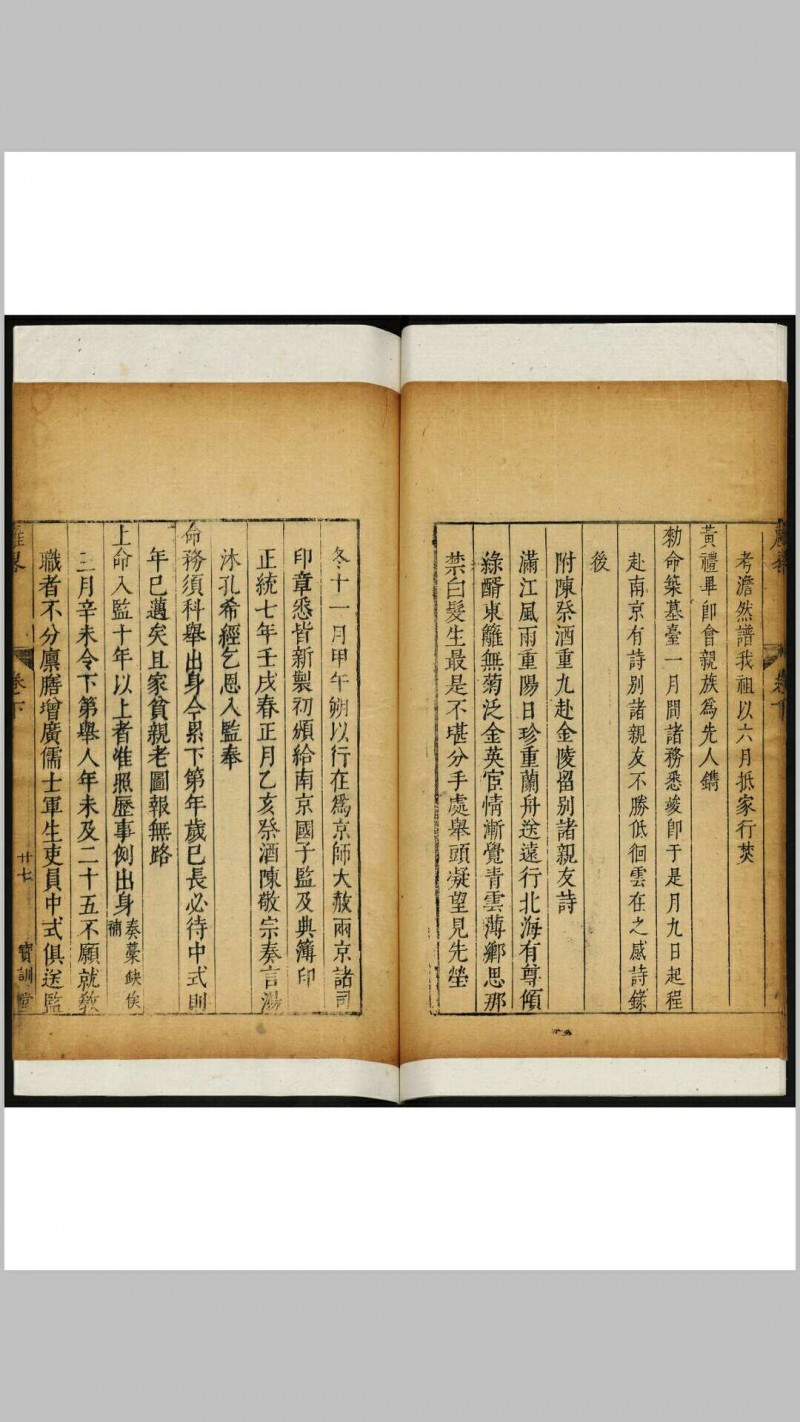 考澹然譜我祖以六月抵家行焚
黃禮畢卽會親族爲先人鐫
勑命築墓臺一月間諸務悉竣卽于是月九日起程
赴南京有詩别諸親友不勝低徊雲在之感詩錄
後
附陳祭酒重九赴金陵留别諸親友詩
滿江風雨重陽日珍重蘭舟送遠行北海有尊傾
綠醑東籬無菊泛金英宦情漸覺青雲薄鄉思那
禁白髮生最是不堪分手處舉頭凝望見先塋
冬十一月甲午朔以行在爲京師大赦兩京諸司
印章悉皆新製初頒給南京國子監及典簿印
正統七年壬戌春正月乙亥祭酒陳敬宗奏言湯
沐孔希經乞恩入監奉
命務須科舉出身今累下第年歲已長必待中式則
年已邁矣且家貧親老圖報無路
上命入監十年以上者惟照歷事例出身奏藁缺俟補
三月辛未令下第舉人年未及二十五不願就敎
職者不分廪膳增廣儒士軍生吏員中式俱送監
卷下
廿七
寶訓堂